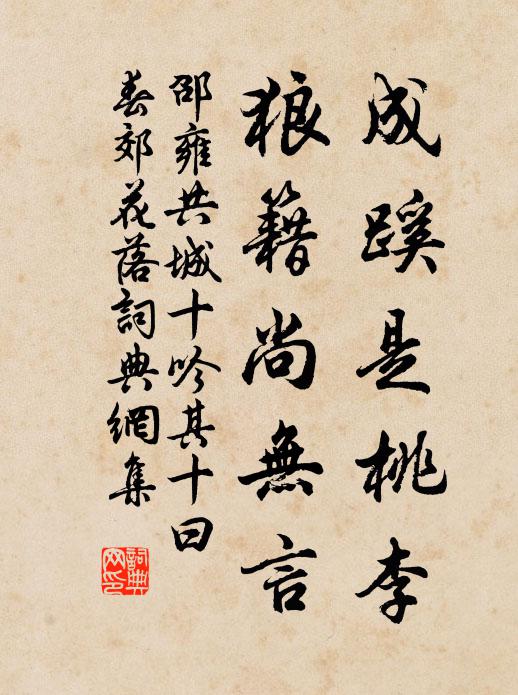 成蹊是桃李
狼籍尚無言
邵雍共城十吟其十曰
春郊花落詞典網集
詞典网印